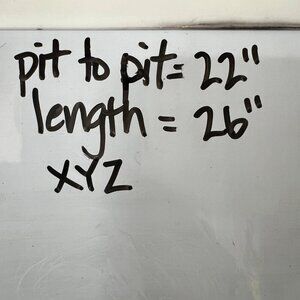 pit to pit= 22"
length = 26"
XYZ